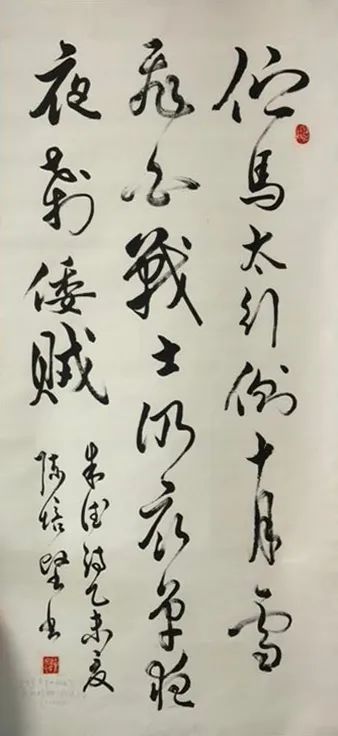 佇馬太行側十月雪
飛白戰士仍衣單夜
夜殺倭賊
朱德詩乙未夏
陳培堅书